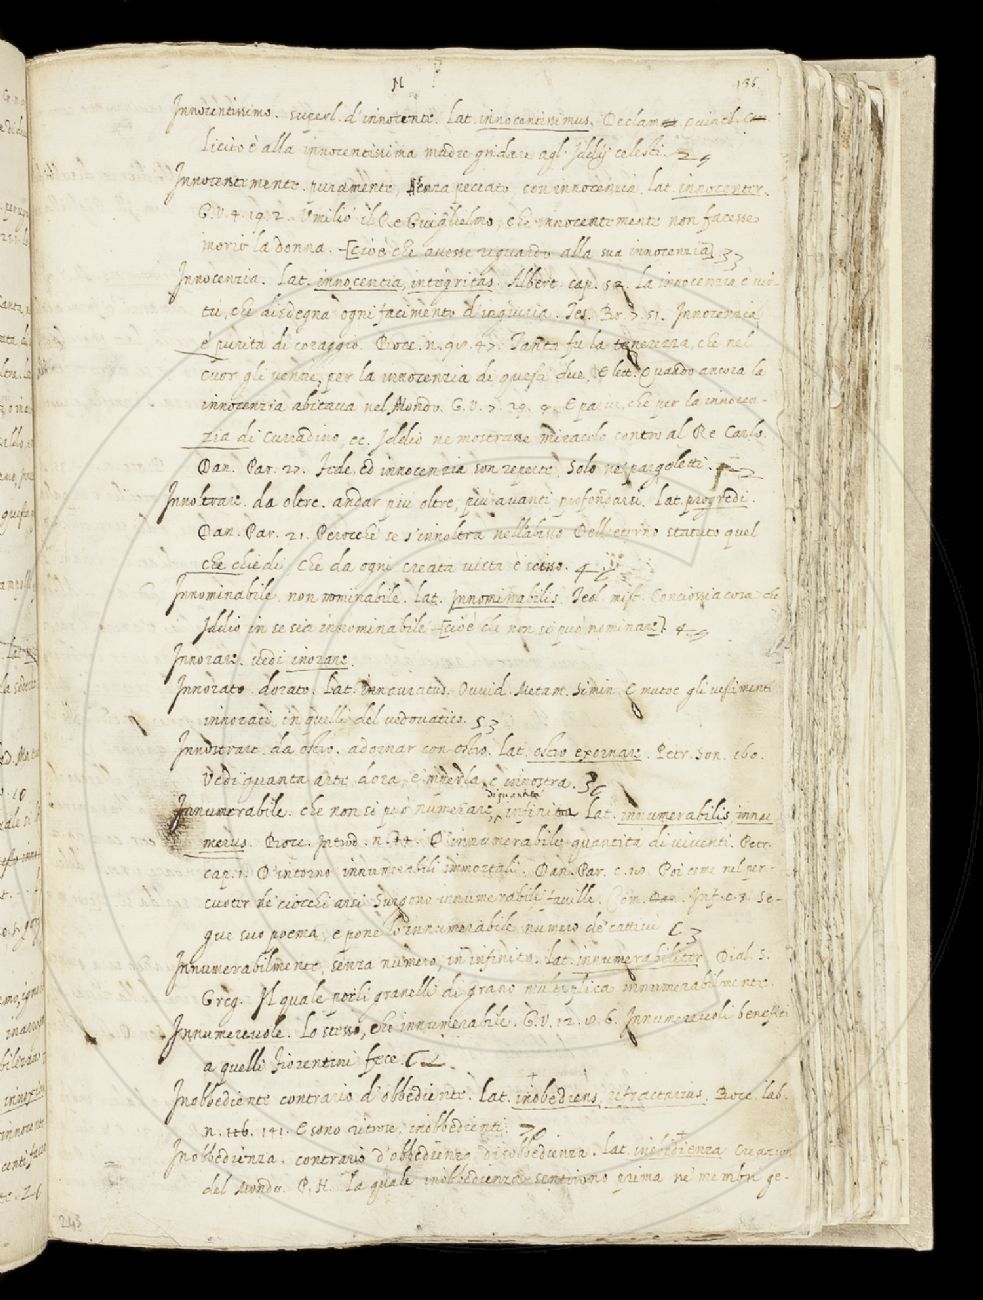 N 136
Innocentissimo. superl. d'innocente. Lat. innocentissimus. Declam. Quintil. C
Licito è alla innocentissima madre gridare agl' Iddij celesti. 29
Innocentemente. puramente, senza peccato con innocenzia. Lat. innocenter.
G. V. 4. 19. 2. Umiliò il Re Guiglielmo, che innocentemente non facesse
morir la donna. [cioè che avesse riguardo alla sua innocenzia] 33
Innocenzia. Lat. innocentia, integritas. Albert. cap. 52. La innocenzia è vir-
tù, che disdegna ogni facimento d'ingiuria. Tes. Br. 7. 51. Innocenzia
è purità di coraggio. Bocc. n. 98. 47. Tanta fu la tenerezza, che nel
cuor gli venne, per la innocenzia di questi due. E lett. Quando ancora la
innocenzia abitava nel Mondo. G. V. 7. 29. 4. E parve, che per la innocen-
zia di Curradino, ec. Iddio ne mostrasse miracolo contro al Re Carlo.
Dan. Par. 27. Fede, ed innocenzia son reperte, Solo ne' pargoletti.
Innoltrare. da oltre. andar più oltre, più avanti, profondarsi. Lat. progredi.
Dan. Par. 21. Perocchè se s'innoltra nell'abisso Dell'eterno statuto quel
che chiedi Che da ogni creata vista è scisso. 4
Innominabile. non nominabile. Lat. Innominabilis. Teol. mist. Conciossiacosa che
Iddio in se sia innominabile [cioè che non si può nominare]. 49
Innorare. vedi inorare.
Innorato. dorato. Lat. inauratus. Ovvid. Metam. Simin. E mutoe gli vestimenti
innorati, in quelli del vedovatico. 53
Innostrare. da ostro. adornar con ostro. Lat. ostro exornare. Petr. Son. 160.
Vedi quanta arte dora, e'mperla, e innostra. 36
di quantità
Innumerabile. che non si può numerare, infinito Lat. innumerabilis, innu-
merus. Bocc. Introd. n. D'innumerabile quantità di viventi. Petr.
cap. 1. D'intorno innumerabili immortali. Dan. Par. c. 18. Poi come nel per-
cuoter de' ciocchi arsi Surgono innumerabili faville. Com. Inf. c. 3. Se-
gue suo poema, e pone lo innumerabile numero de' cattivi C3
Innumerabilmente, senza numero, in infinito. Lat. innumerabiliter. Dial. S.
Greg. Il quale nelli granelli di grano multiplica innumerabilmente.
Innumerevole. Lo stesso, che innumerabile. G. V. 12. 8. 6. Innumerevoli benefici
a quelli Fiorentini fece.
Inobbediente contrario d'obbediente. Lat. inobediens, refractarius. Bocc. lab.
n. 141. E sono ritrose, inobbedienti.
Inobbedienza. contrario d'obbedienza, disobbedienza. Lat. inobedienza Creazion
del Mondo. P. N. La quale inobbedienza sentirono prima ne' membri ge-
243